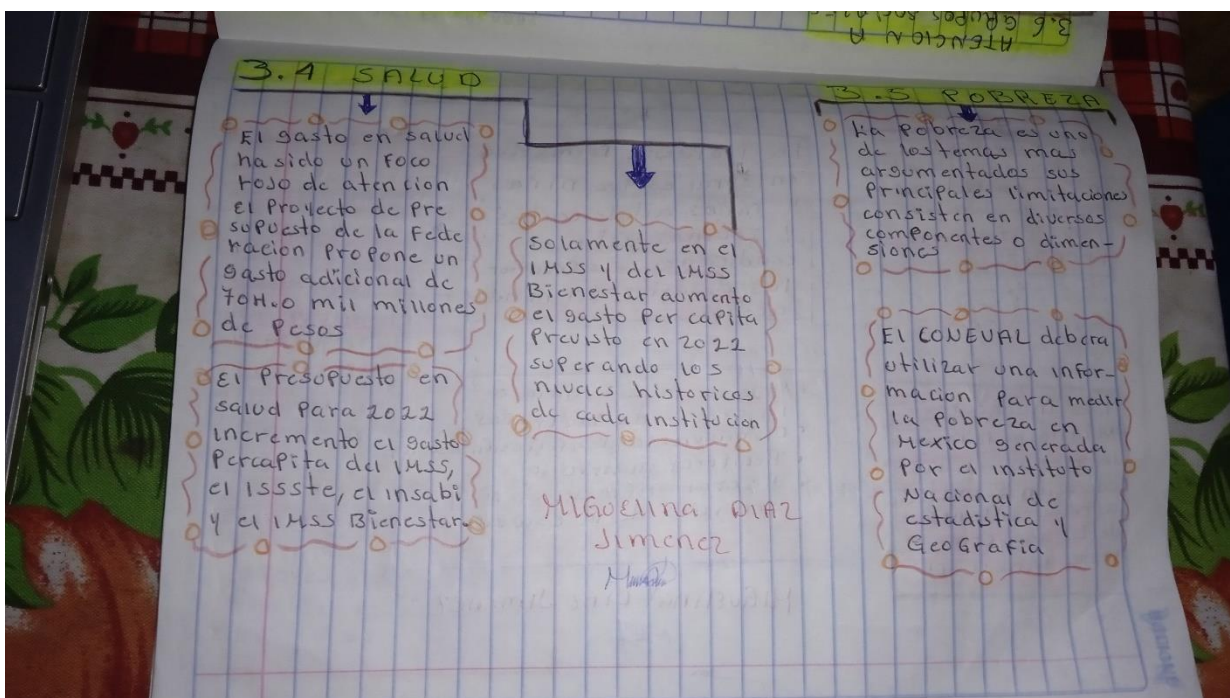 3.6 GRUPOS
ATENCION A
3.4 SALUD
El gasto en salud
ha sido un Foco
rojo de atencion
El Proyecto de Pre
supuesto de la Fede
racion Propone un
gasto adicional de
mil millones
de Pesos
El Presupuesto en
salud Para 2022
incremento el gasto
Percapita del IMSS,
el ISSSte, el insabi
y el IMSS Bienestar.
Solamente en el
IMSS y del IMSS
Bienestar aumento
el gasto Per capita
Previsto en 2022
superando los
niveles historicos
de cada institucion
MIGUElina DIAZ
Jimenez
3.5 POBREZA
La Pobreza es uno
de los temas mas
argumentados sus
Principales limitaciones
consisten en diversos
componentes o dimen-
siones
El CONEVAL debera
utilizar una infor-
macion Para medir
la Pobreza en
Mexico generada
Por el instituto
Nacional de
estadistica y
GeoGrafia